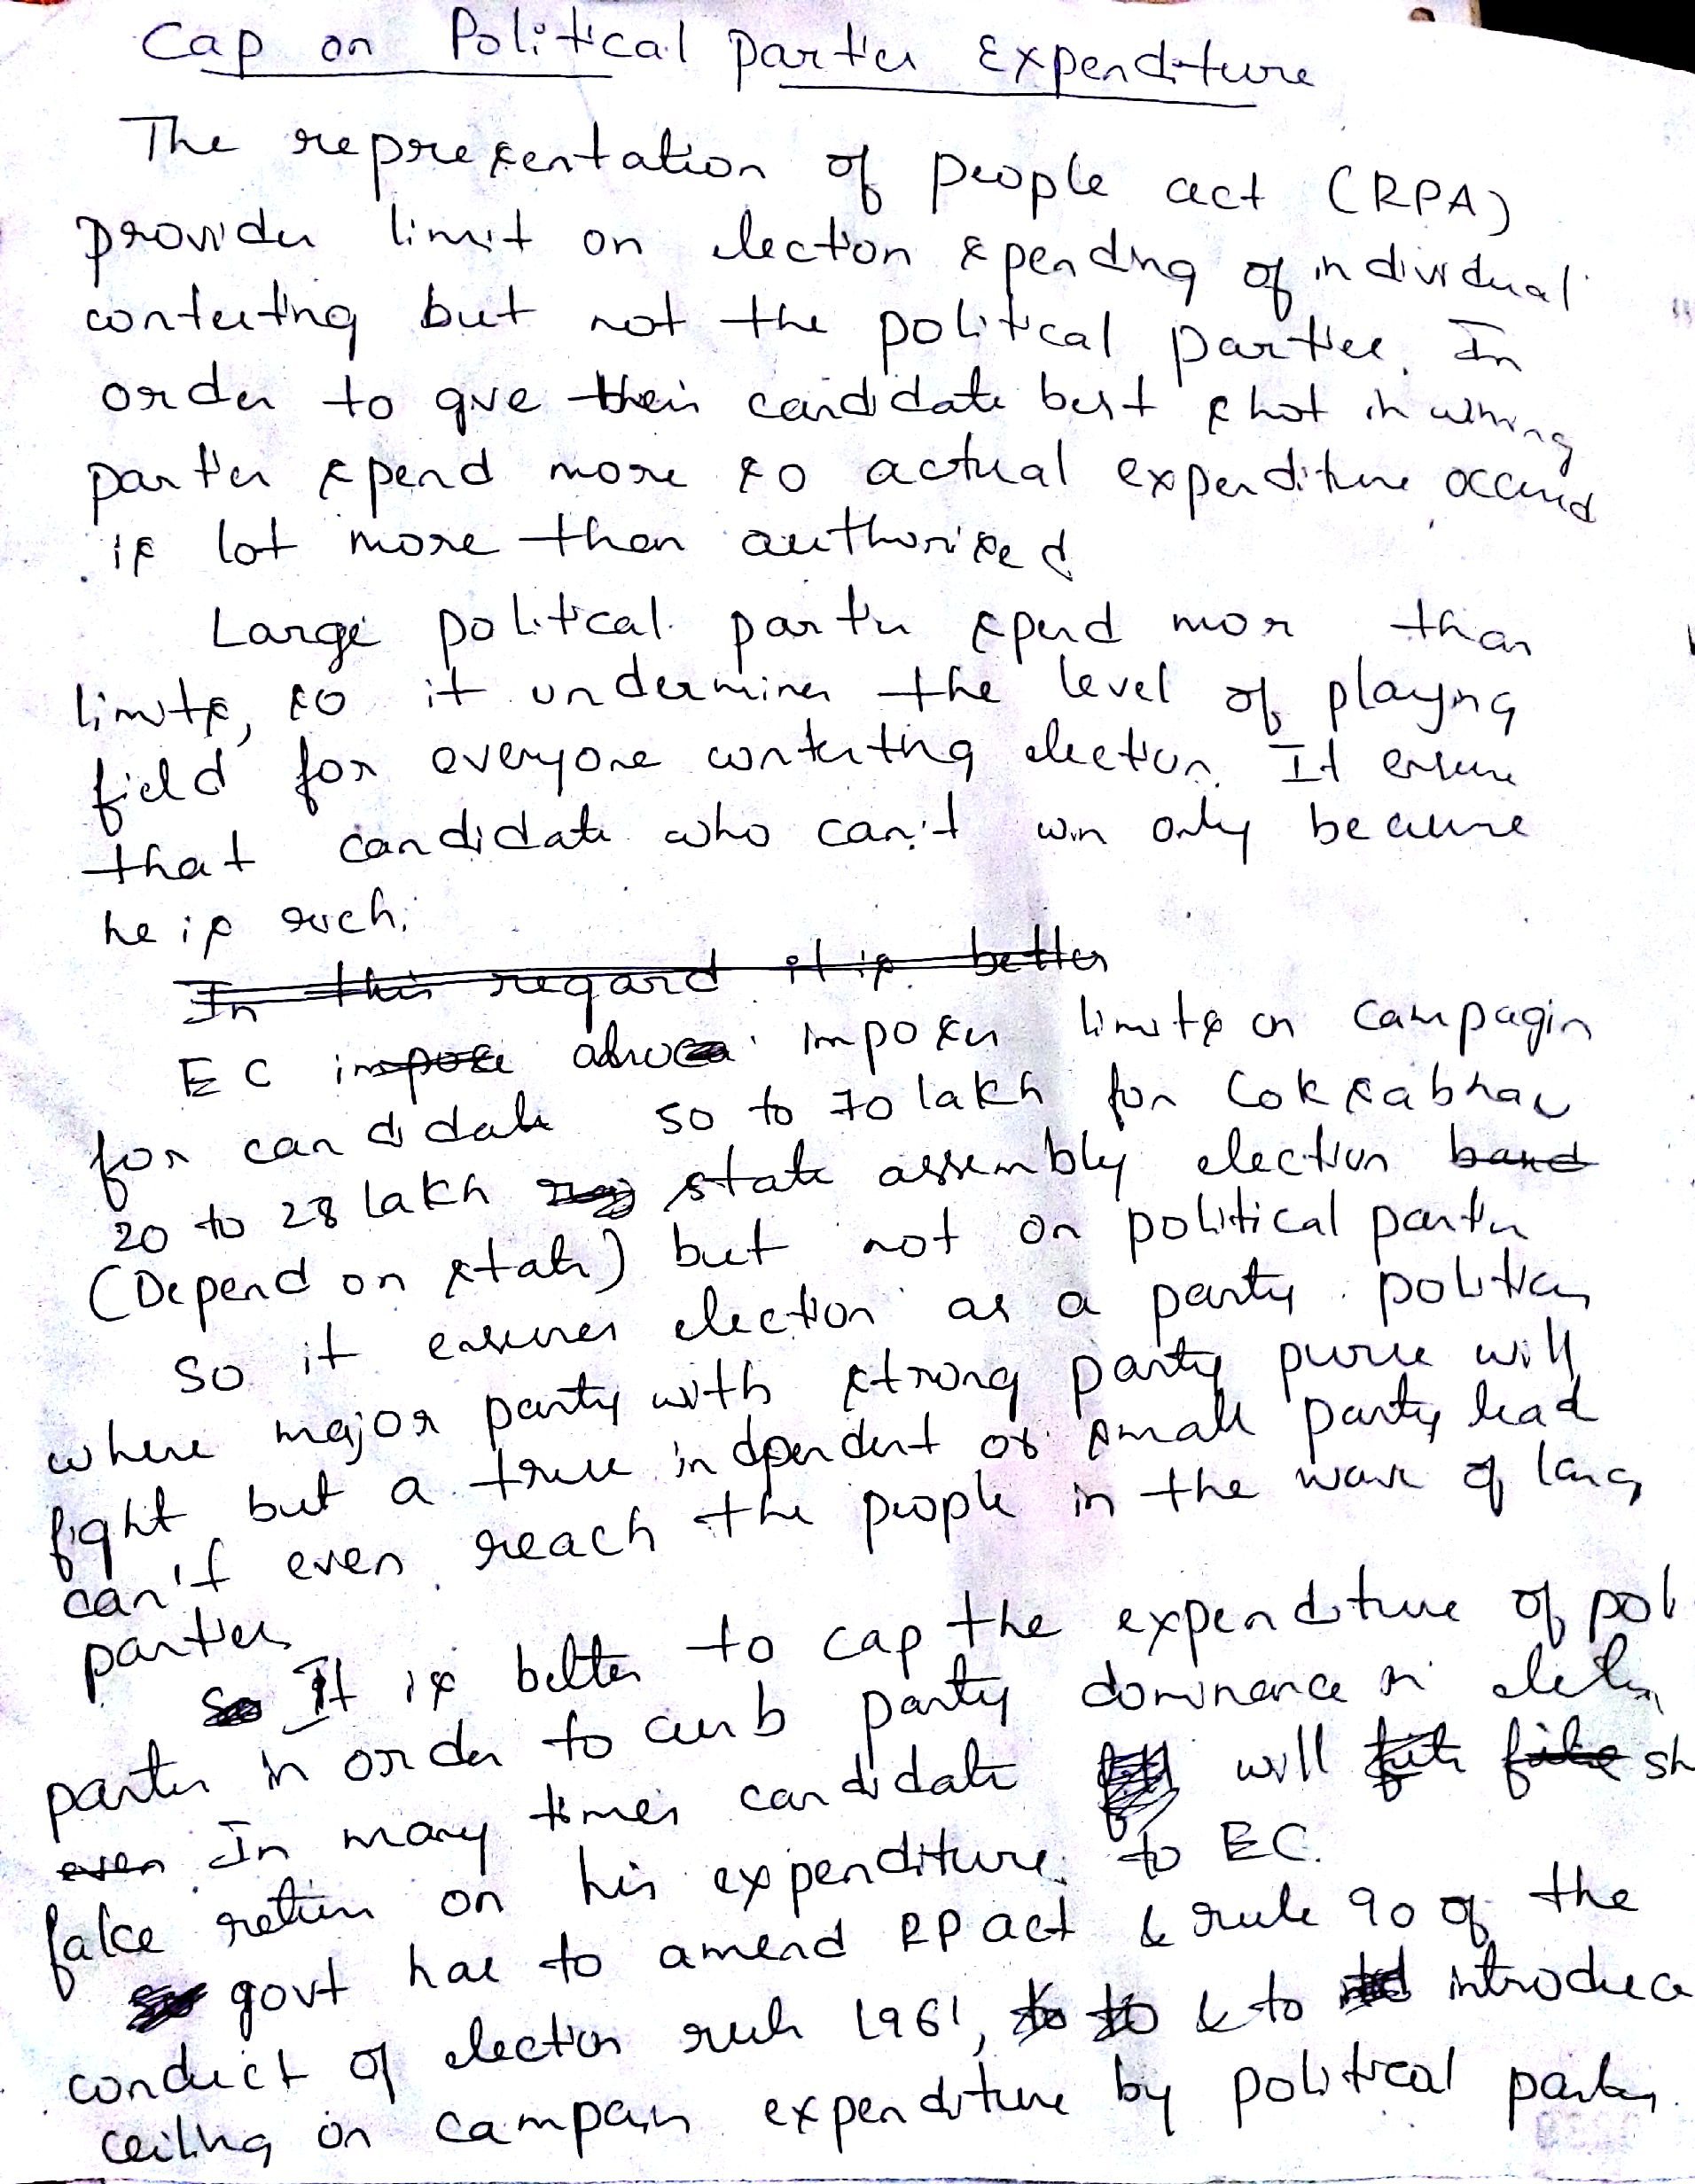 Cap on Political Parties Expenditure
The representation of people act (RPA)
provides limit on election spending of individual
contesting but not the political parties. In
order to give their candidate best shot in wining
parties spend more so actual expenditure occured
is lot more then authorised
Large political parties spend mor than
limits, so it undermines the level of playing
field for everyone contesting election. It ensure
that candidate who can't win only because
he is rich.
In this regard it is better
EC impose imposes limits on campagin
for candidate 50 to 70 lakh for Loksabha
20 to 28 lakh state assembly election
(Depend on state) but not on political parties
So it ensures election as a party politics
where major party with strong party purse will
fight but a true indpendent or small party lead
can't even reach the people in the wave of larg
parties
It is better to cap the expenditure of pol
parties in order to curb party dominance in
even In many times candidate will sh
false return on his expenditure to EC.
govt has to amend RP act & rule 90 of the
conduct of election rule 1961, & to introduce
ceiling on campain expenditure by political parties